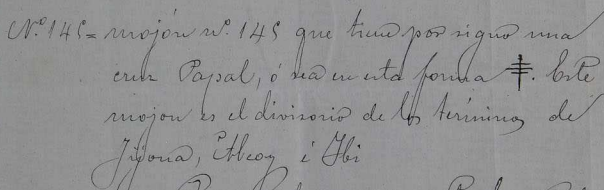 Nº 145 = mojón nº 145 que tiene por signo una
cruz Papal, ó sea en esta forma ⯭. Este
mojon es el divisorio de los terminos de
Jijona, Alcoy é Ibi